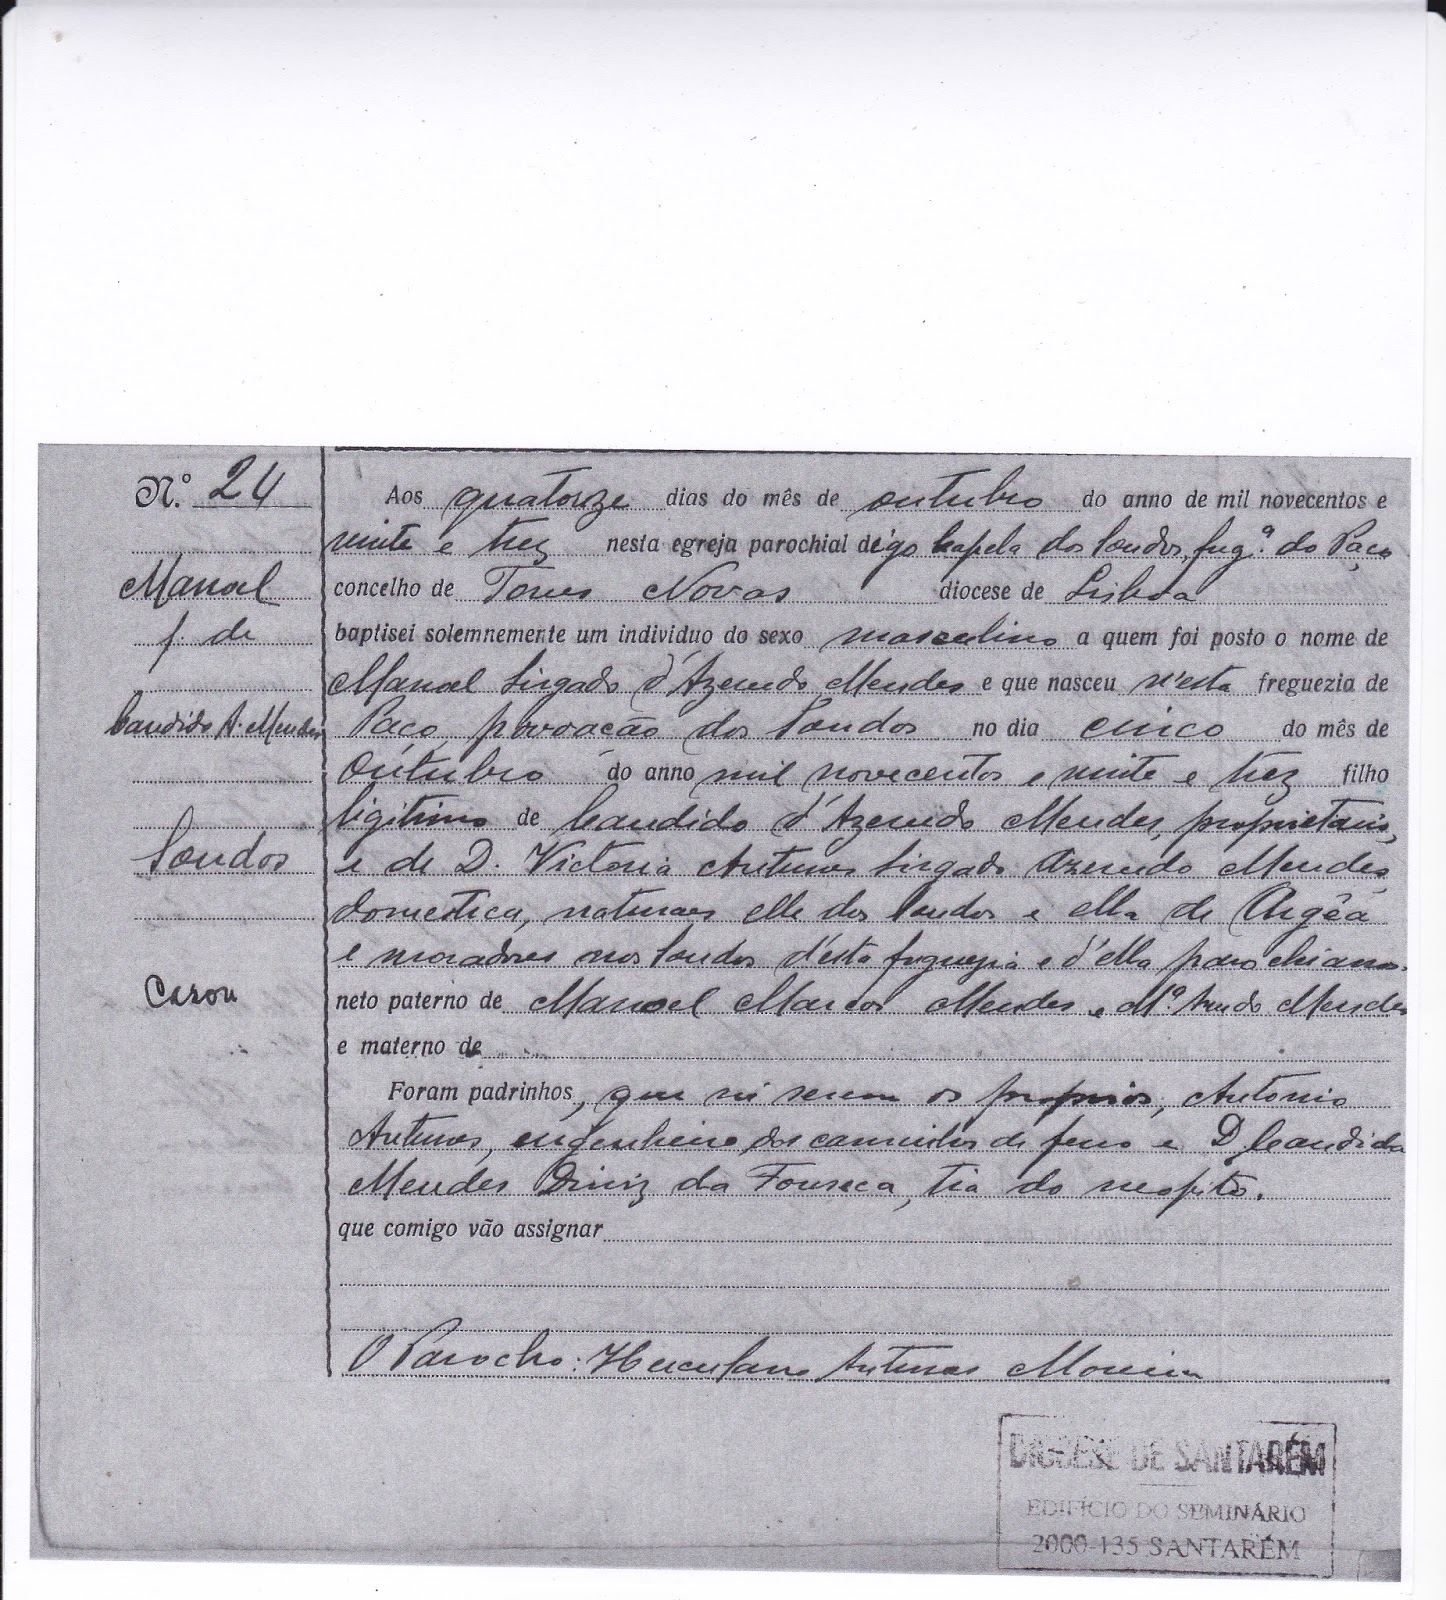 N.º 24
Manoel
f. de
Candido A. Mendes
Soudos
Casou
Aos quatorze dias do mês de outubro do anno de mil novecentos e
vinte e trez nesta egreja parochial digo Capela dos Soudos, freg.ª do Paço
concelho de Torres Novas diocese de Lisboa
baptisei solemnemente um individuo do sexo masculino a quem foi posto o nome de
Manoel Sirgado d'Azevedo Mendes e que nasceu n'esta freguezia de
Paço, povoação dos Soudos no dia cinco do mês de
Outubro do anno mil novecentos e vinte e trez filho
legitimo de Candido d'Azevedo Mendes, proprietario,
e de D. Victoria Antunes Sirgado Azevedo Mendes,
domestica, naturaes elle dos Soudos e ella de Argêa
e moradores nos Soudos d'esta freguezia e d'ella parochianos.
neto paterno de Manoel Marcos Mendes e M.ª Azevedo Mendes
e materno de
Foram padrinhos, que sei serem os proprios, Antonio
Antunes, engenheiro dos caminhos de ferro e D. Candida
Mendes Diniz da Fonseca, tia do neofito.
que comigo vão assignar
O Parocho: Herculano Antunes Moreira
DIOCESE DE SANTARÉM
EDIFÍCIO DO SEMINÁRIO
2000-135 SANTARÉM